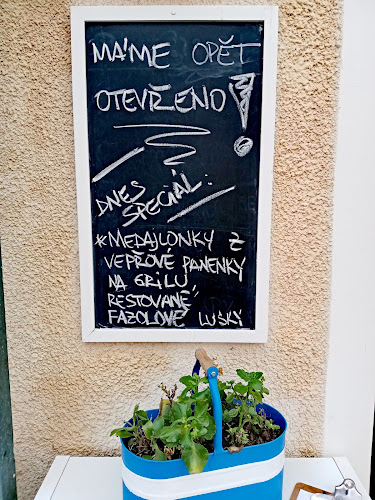 MÁME OPĚT
OTEVŘENO!
DNES
SPECIÁL:
*MEDAJLONKY Z
VEPŘOVÉ PANENKY
NA GRILU,
RESTOVANÉ
FAZOLOVÉ LUSKY